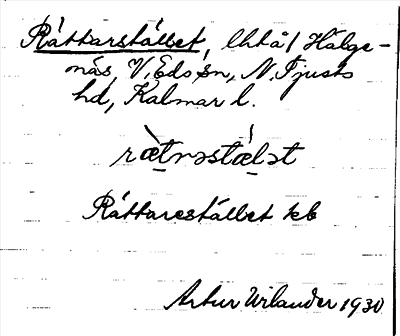 Råttarstället, lhtå / Hälge-
näs, V. Eds sn, N. Tjusts
hd, Kalmar l.
ræ̀tʀəstæ̀l̀ət
Råttarestället kb
Artur Wilander 1930